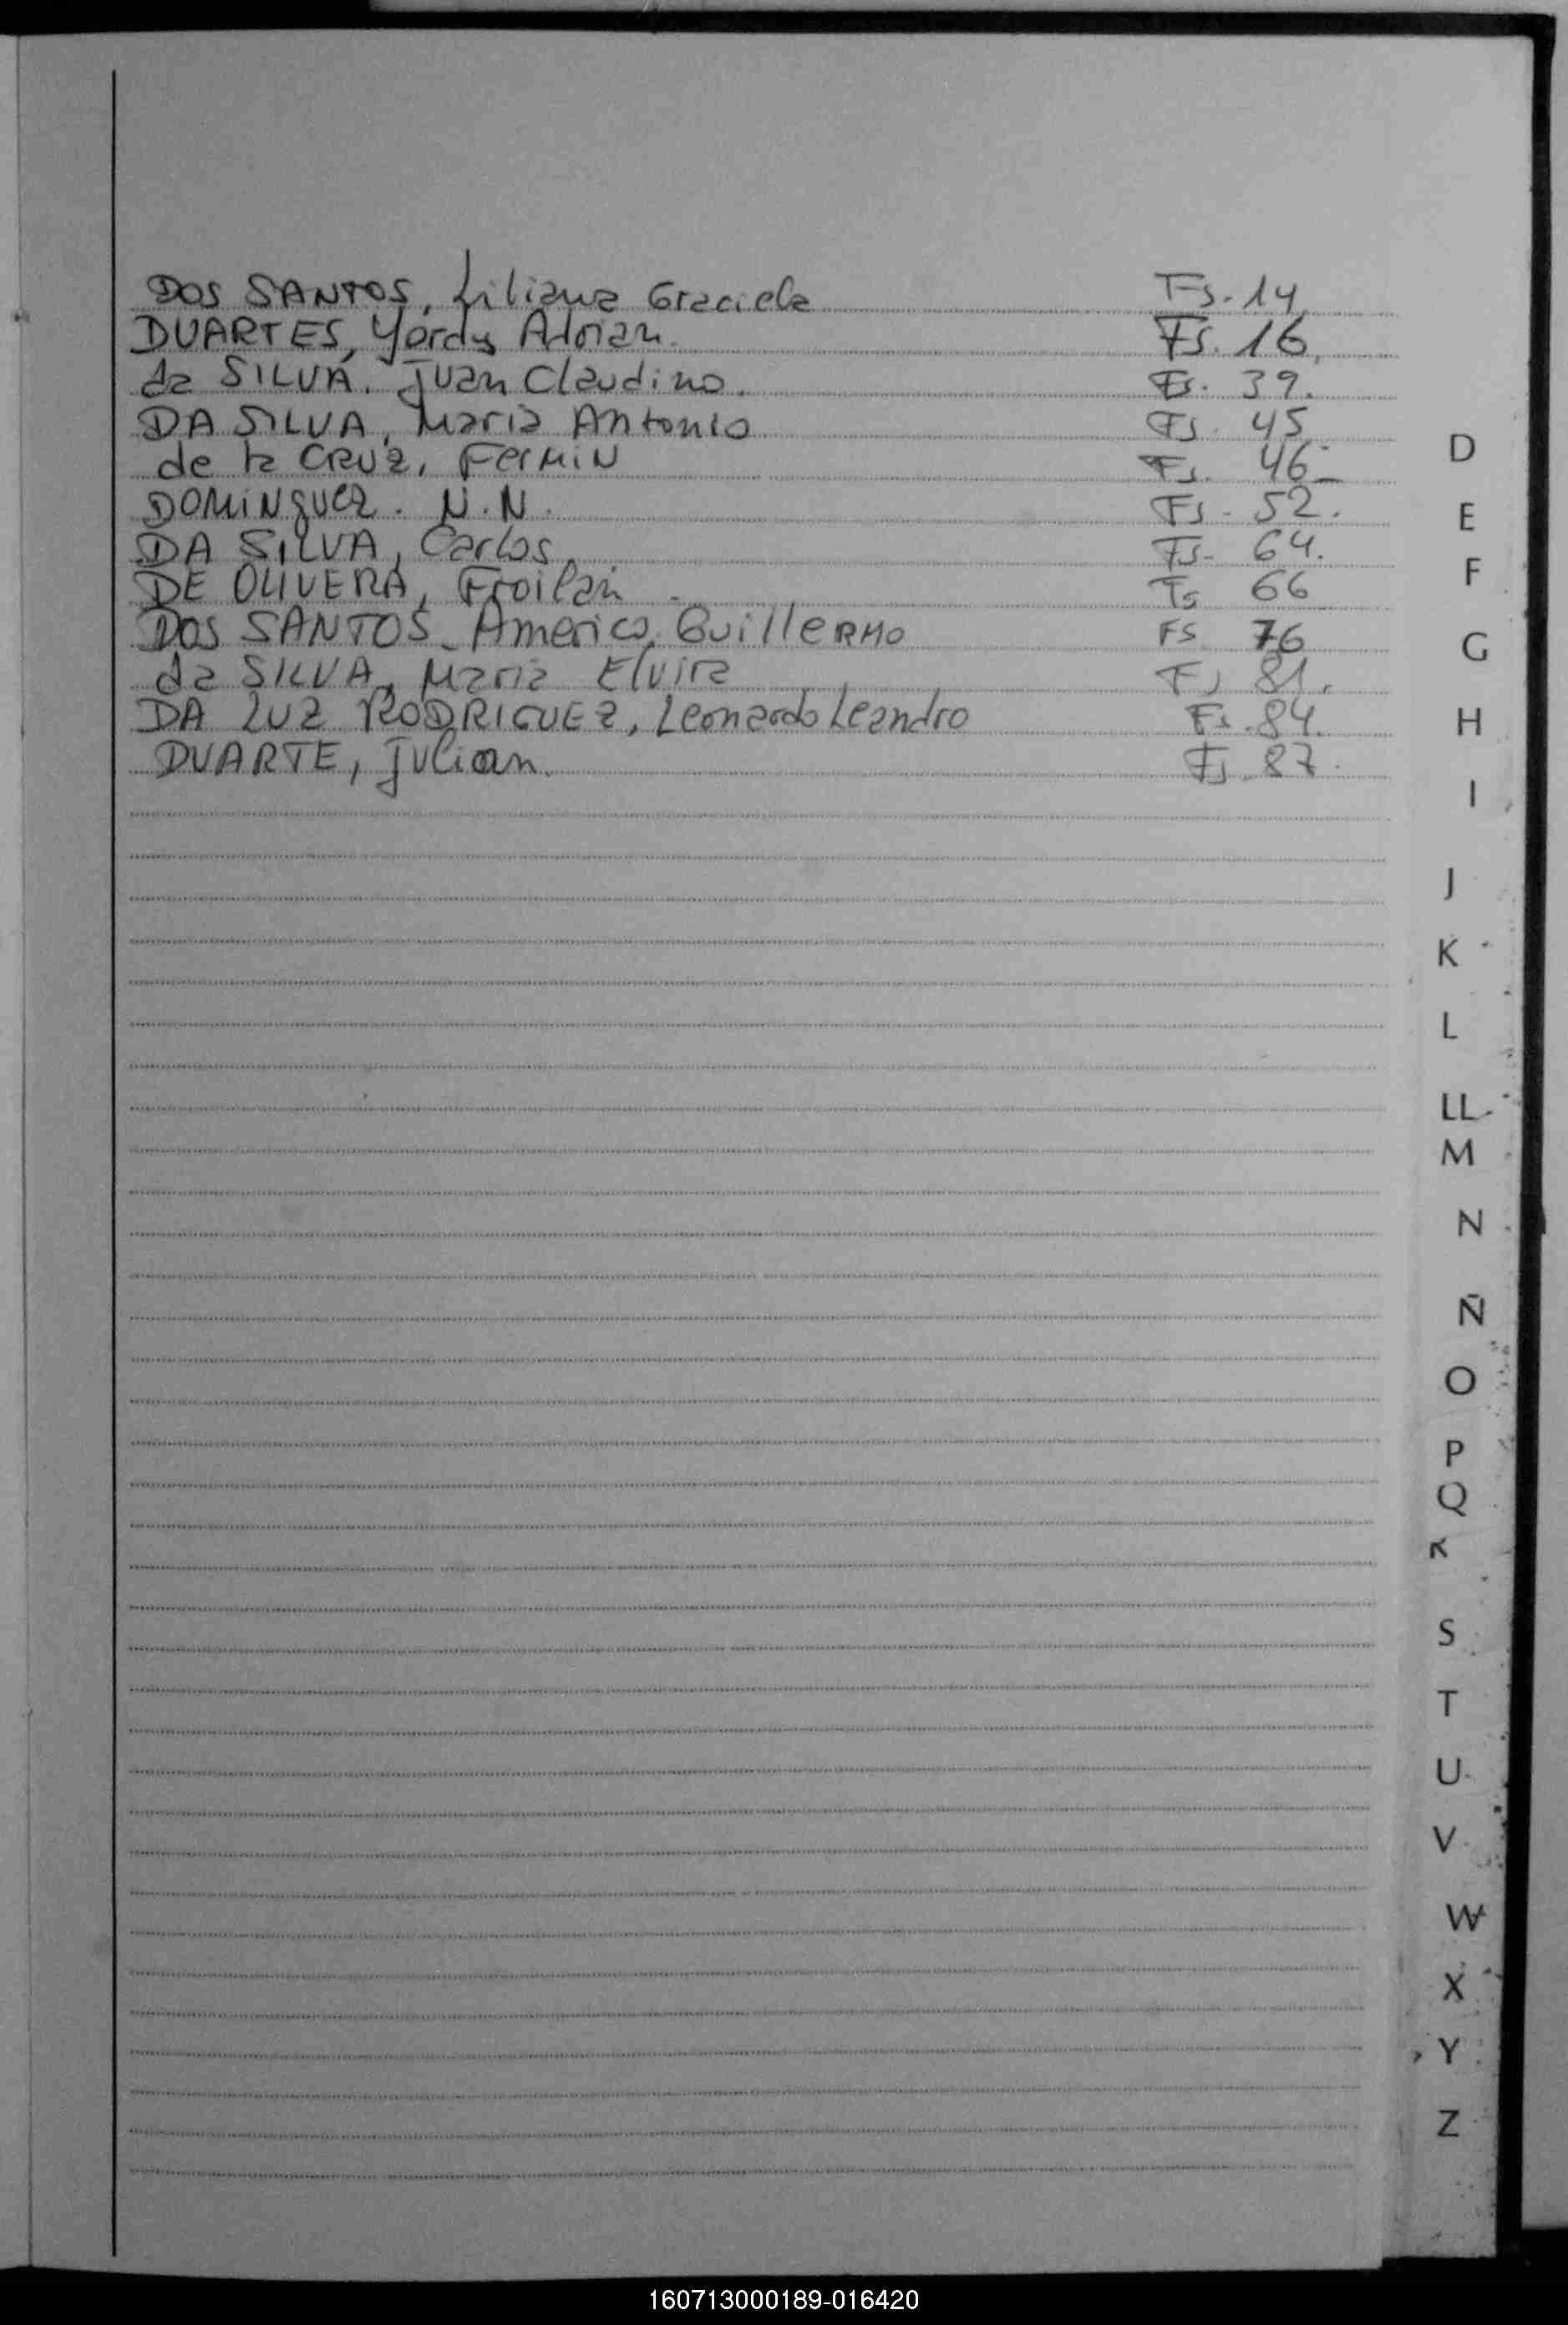 DOS SANTOS, Liliana Graciela Fs. 14
DUARTES, Yordys Adrian. Fs. 16.
da SILVA. Juan Claudino. Fs. 39.
DA SILVA, Maria Antonio Fs. 45
de la CRUZ, FerMiN Fs. 46-
DOMiNguez. N.N. Fs - 52.
DA SILVA, Carlos. Fs- 64.
DE OLIVERA, Froilan - Fs 66
DOS SANTOS - Americo. GuilleRMO FS 76
da SILVA, Maria Elvira Fs 81.
DA LUZ RODRIGUEZ, Leonardo Leandro Fs. 84.
DUARTE, Julian. Fs. 87.
D
E
F
G
H
I
J
K
L
LL
M
N
Ñ
O
P
Q
R
S
T
U
V
W
X
Y
Z
160713000189-016420